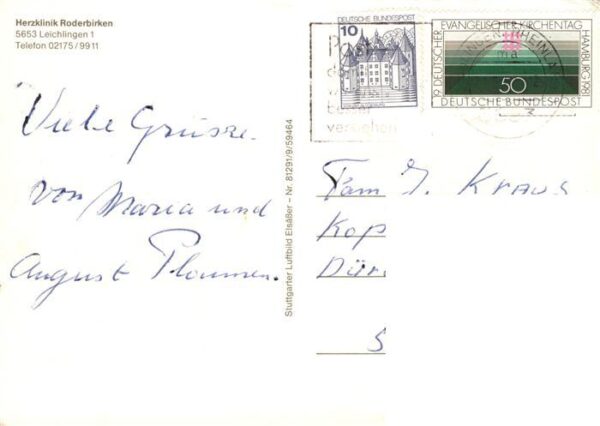 Herzklinik Roderbirken
5653 Leichlingen 1
Telefon 02175 / 99 11
10
DEUTSCHE BUNDESPOST
19. DEUTSCHER
EVANGELISCHER KIRCHENTAG
HAMBURG 1981
50
DEUTSCHE BUNDESPOST
Post
verstehen
Viele Grüsse
von Maria und
August Ploumen.
Stuttgarter Luftbild Elsäßer – Nr. 81291/9/59464
Fam J. Kraus
Kop
Dür
S